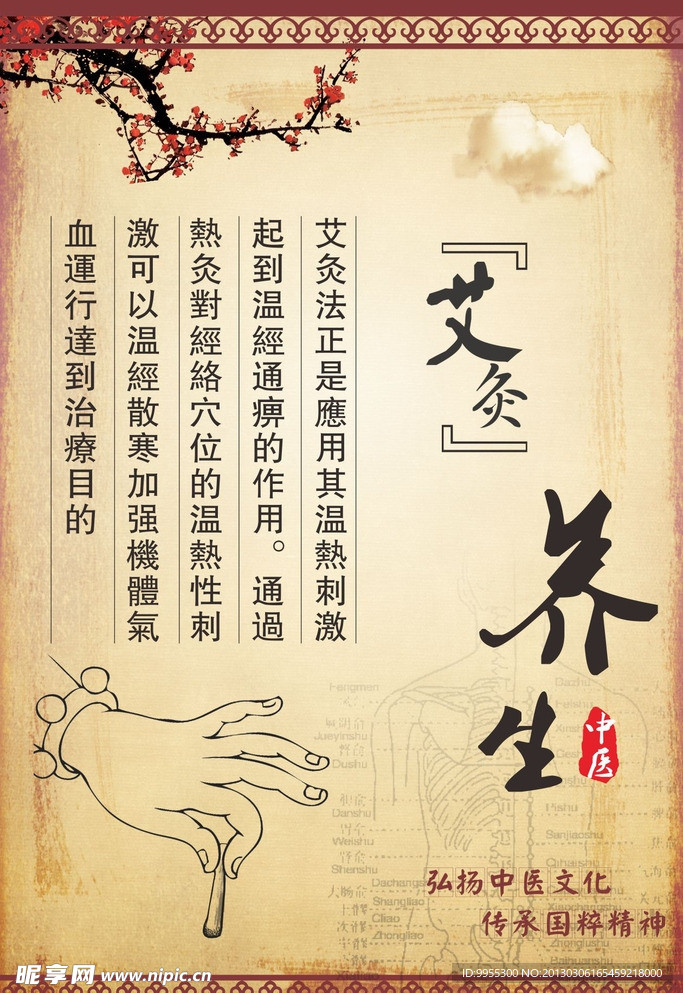 『艾灸』
养生
中医
艾灸法正是應用其温熱刺激
起到温經通痹的作用。通過
熱灸對經絡穴位的温熱性刺
激可以温經散寒加强機體氣
血運行達到治療目的
Fengmen
Jueyinshu
Dushu
Danshu
Weishu
Shenshu
Shangliao
Ciliao
Zhongliao
Pishu
Sanjiaoshu
弘扬中医文化
传承国粹精神
昵享网 www.nipic.cn
ID:9955300 NO:20130306165459218000